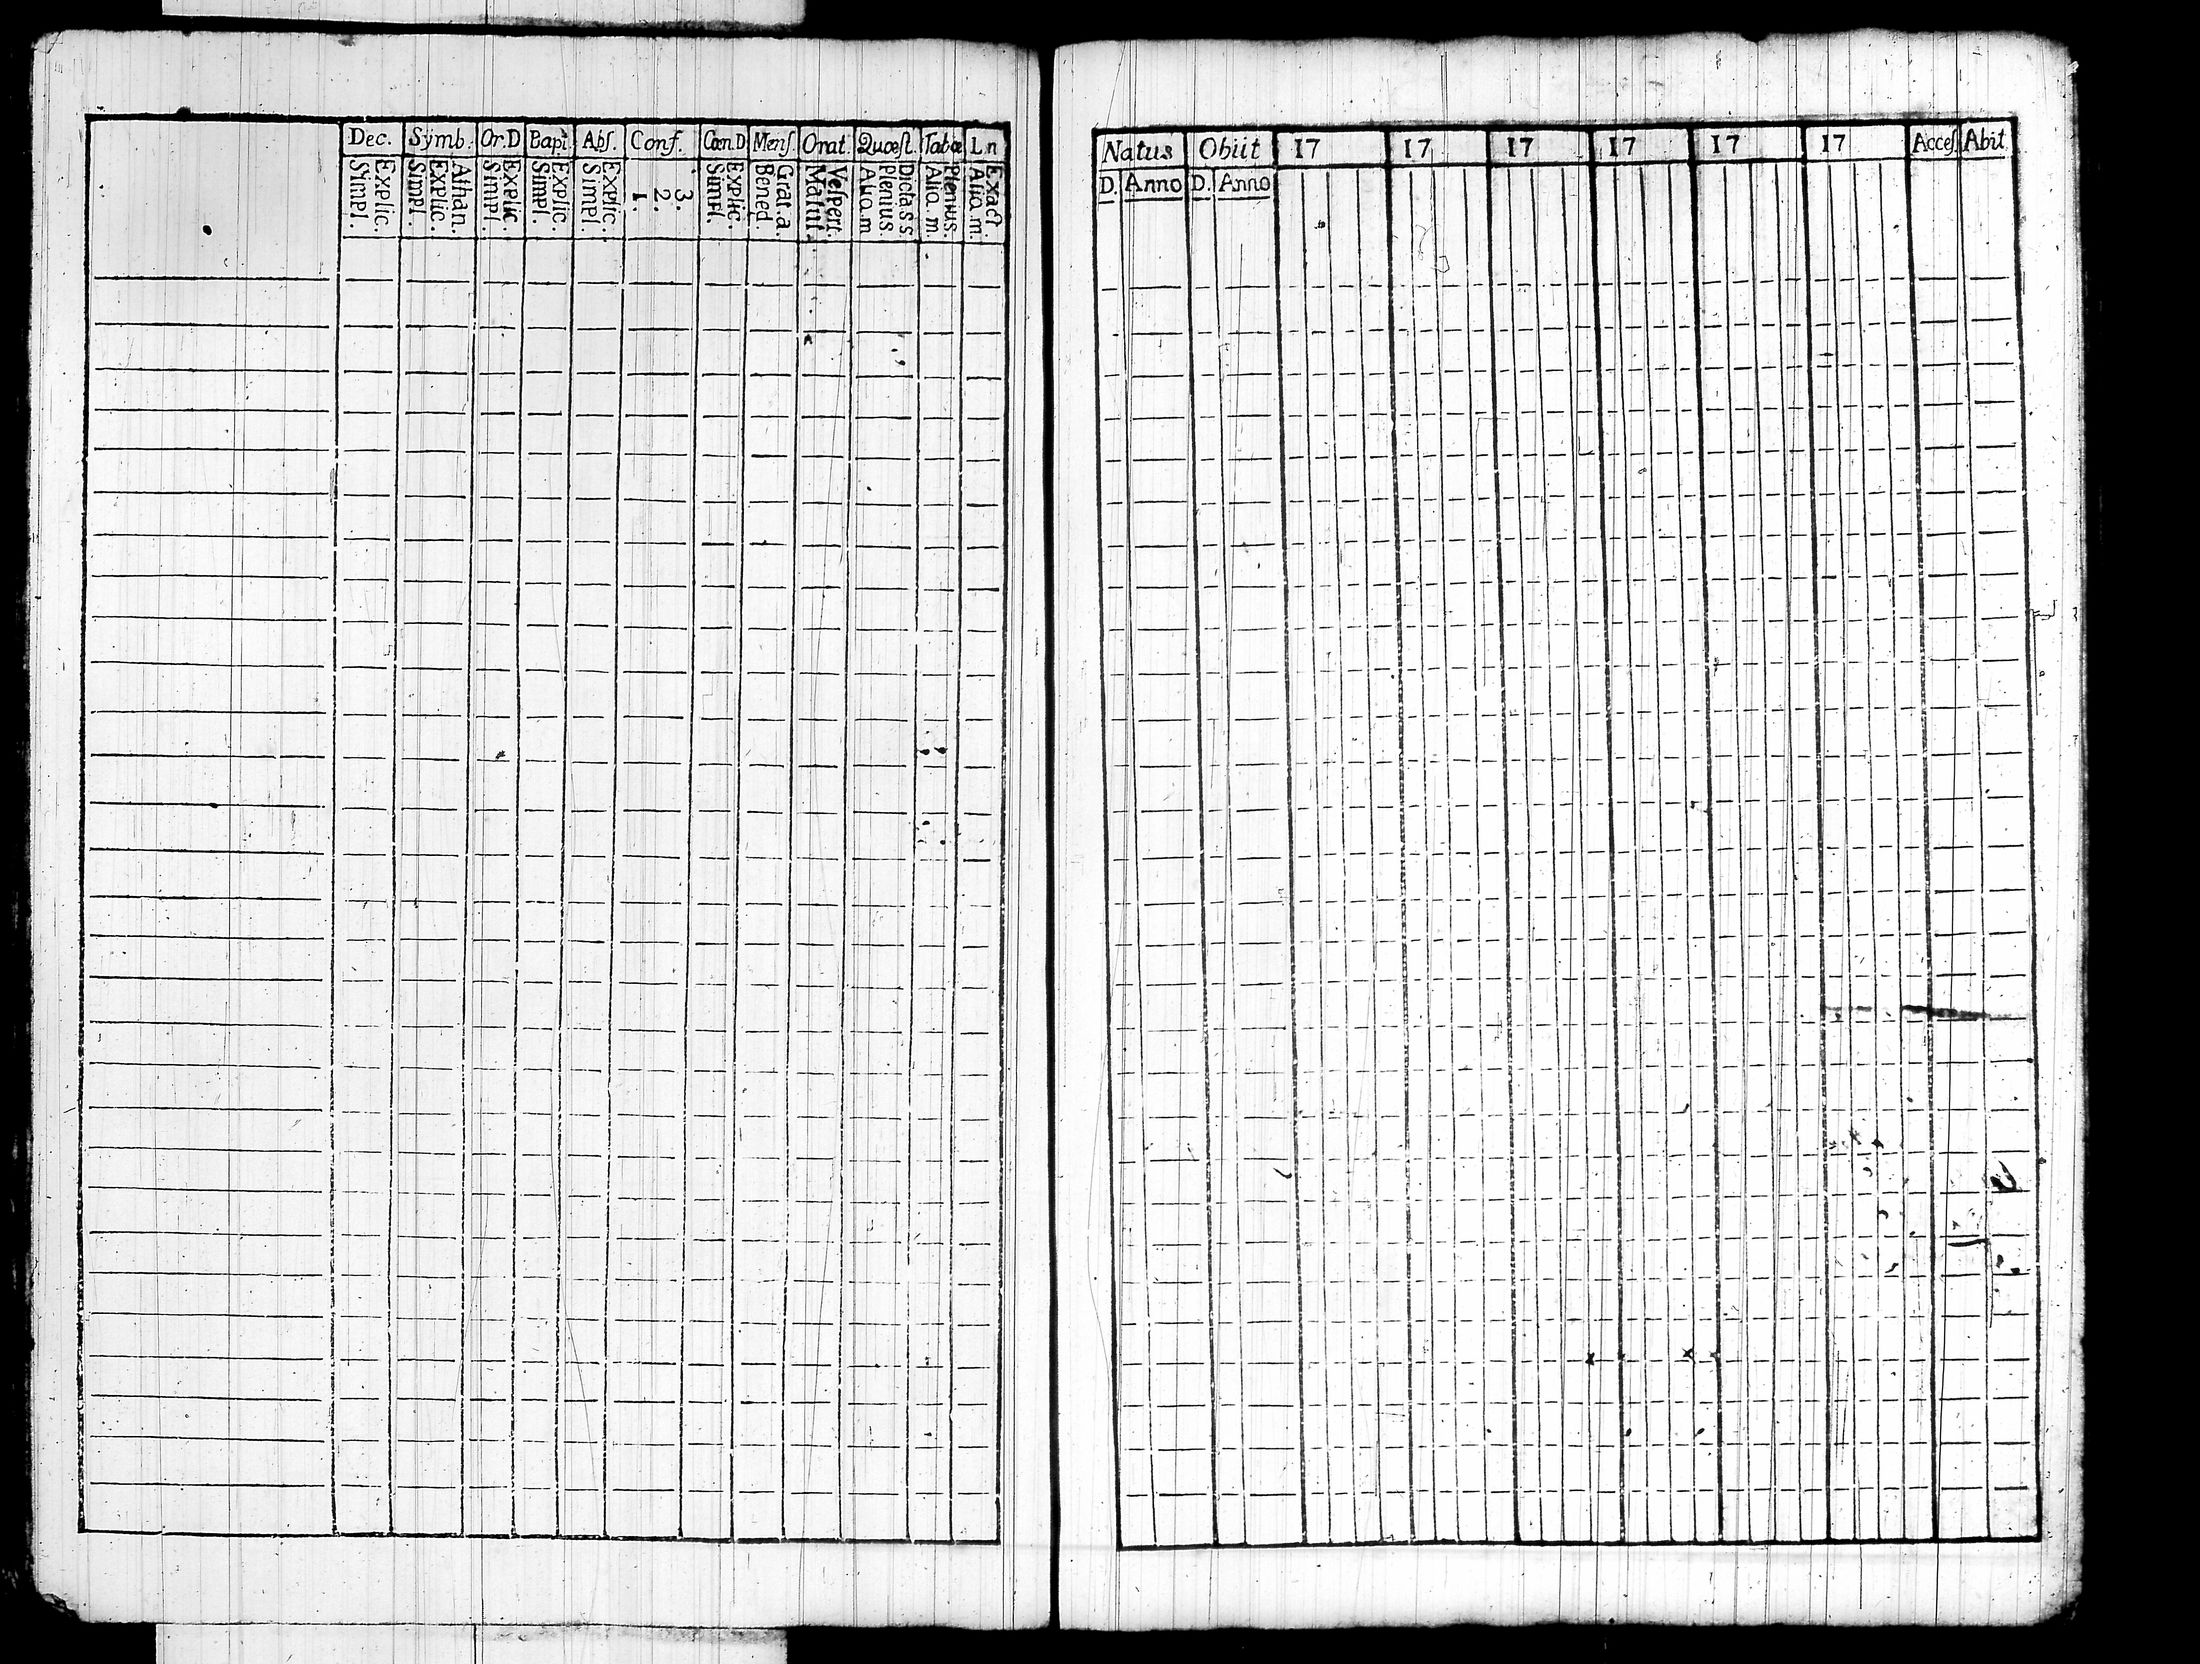 Dec. Symb. Or.D Bapt. Abſ. Conf. Cœn.D Menſ. Orat. Quæſt. Tabæ L.n
Explic. Simpl.
Athan. Explic. Simpl.
Explic. Simpl.
Explic. Simpl.
Explic. Simpl.
3. 2. 1.
Explic. Simpl.
Grat.a. Bened.
Veſpert. Matut.
Dicta s s Plenius Aliq.m
Plenius. Aliq. m.
Exact. Aliq. m.
Natus Obiit 17 17 17 17 17 17 Acceſ. Abit
D. Anno D. Anno